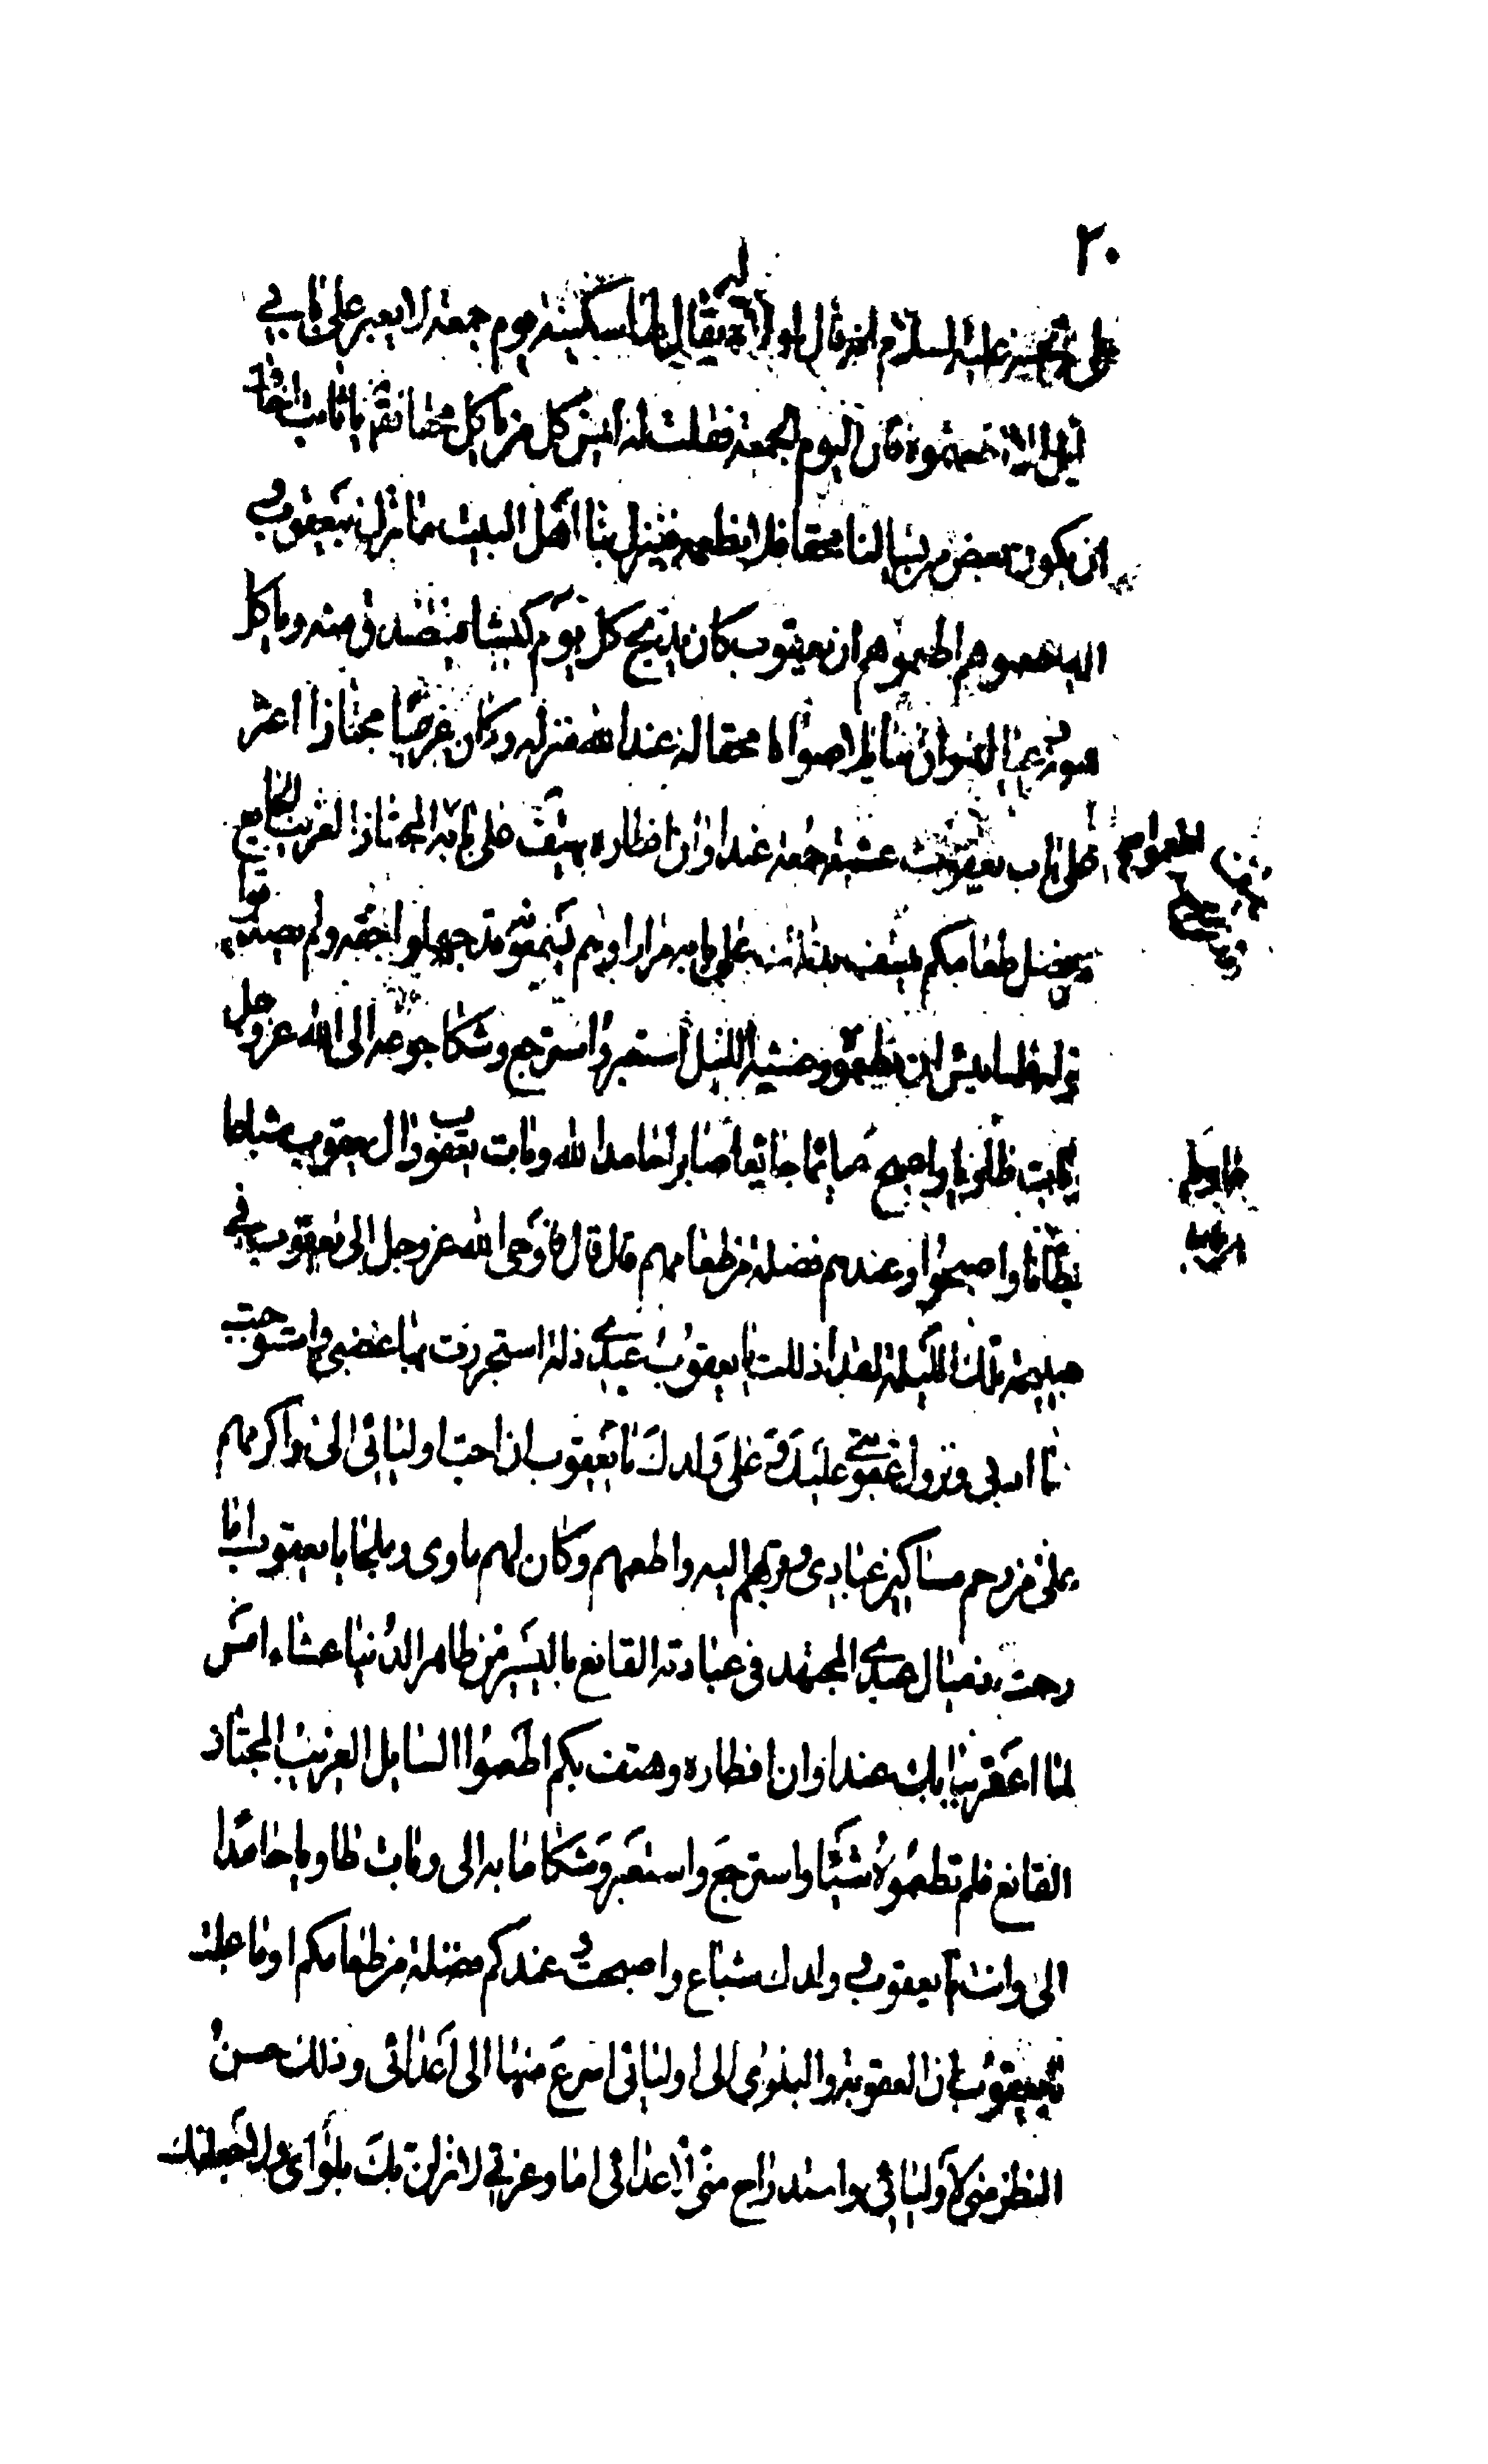 ٢٠
علي بن الحسين عليه السلم انه قال لمولاة يقال لها سكينة يوم جمعة لا يعبر على بابي
سائل الا اطعمتموه فان اليوم الجمعة فقلت له ليس كل من ياكل محقا فقال يا ثابت اخاف
ان يكون بعض من يسالنا محقا فلا نطعمه فينزل بنا اهل البيت ما نزل بيعقوب
اله اطعموهم اطعموهم ان يعقوب كان يذبح كل يوم كبشا فيتصدق منه وياكل
هو وعياله وان سايلا صواما محقا له عند الله منزلة وكان غريبا مجتازا اعتر
على باب يعقوب عشية جمعة عند اوان افطاره يهتف على بابه المجتاز الغريب الجايع
اطعموا
من فضل طعامكم يهتف بذلك على بابه مرارا وهم يسمعونه قد جهلوا حقه ولم يصدقوا
قوله فلما يئس ان يطعموه وغشيه الليل استعبر واسترجع وشكا جوعه الى الله عز وجل
وبات طاويا واصبح صائما جائعا صابرا حامدا لله وبات يعقوب وال يعقوب شباعا
بطانا واصبحوا وعندهم فضلة من طعامهم قال فاوحى الله عز وجل الى يعقوب في
صبيحة تلك الليلة لقد اذللت يا يعقوب عبدي ذلة استجررت بها غضبي واستوجبت
بها ادبي ونزول عقوبتي عليك وعلى ولدك يا يعقوب ان احب اوليائي الي واكرمهم
علي من رحم مساكين عبادي وقربهم اليه واطعمهم وكان لهم ماوى وملجا يا يعقوب اما
رحمت ذميال عبدي المجتهد في عبادته القانع باليسير من ظاهر الدنيا عشاء امس
لما اعتر ببابك عند اوان افطاره وهتف بكم اطعموا السايل الغريب المجتاز
القانع فلم تطعموه شيئا واسترجع واستعبر وشكا ما به الي وبات طاويا حامدا
الي وانت يا يعقوب وولدك شباع واصبحت وعندكم فضلة من طعامكم اوما علمت
يا يعقوب ان العقوبة والبلوى الى اوليائي اسرع منها الى اعدائي وذلك حسن
النظر مني لاوليائي واستدراج مني لاعدائي اما وعزتي لانزلن بك بلواي ولاجعلنك